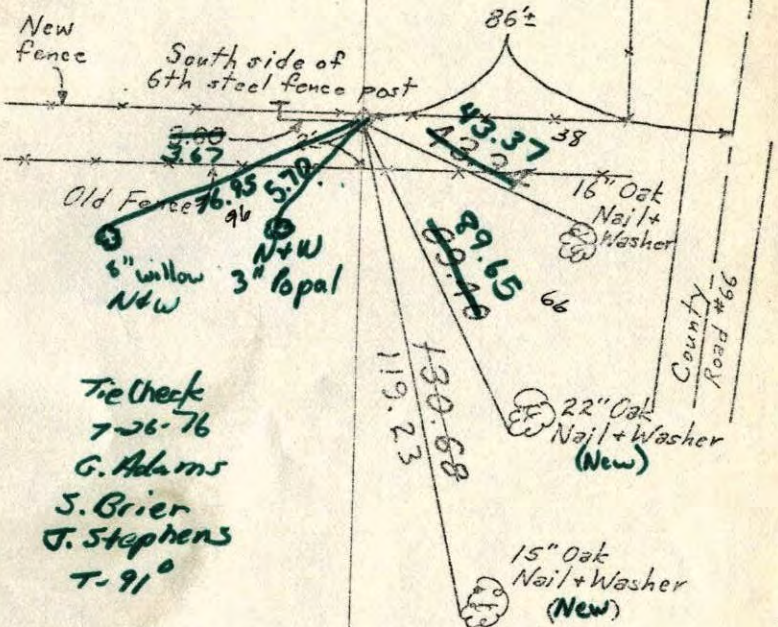 New
fence
South side of
6th steel fence post
86'±
5.00
3.67
2'
43.37
38
Old Fence
76.95
96
5.70
16" Oak
Nail +
Washer
8" willow
N+W
N+W
3" Popal
89.65
66
County
Road #66
130.68
119.23
22" Oak
Nail + Washer
(New)
Tie Check
7-26-76
G. Adams
S. Brier
J. Stephens
T-91°
15" Oak
Nail + Washer
(New)